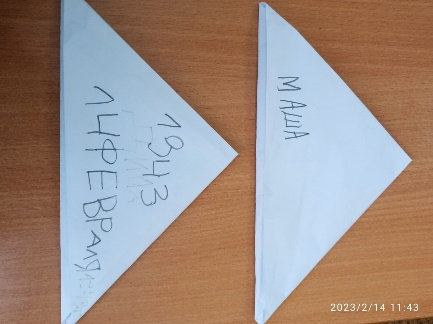 1943
14 ФЕВРАЛЯ
МАША
2023/2/14 11:43